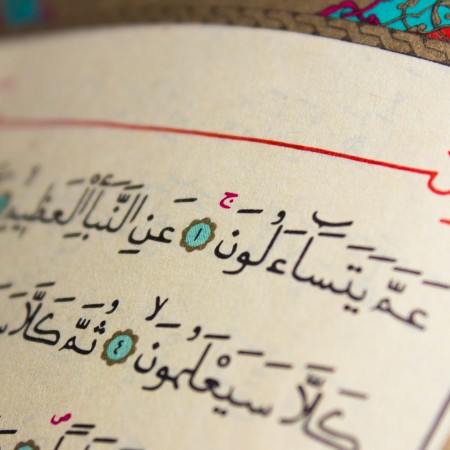 عَمَّ يَتَسَاءَلُونَ ۚ ١ عَنِ النَّبَاِ الْعَظ۪يمِ
كَلَّا سَيَعْلَمُونَ ۙ ٤ ثُمَّ كَلَّا